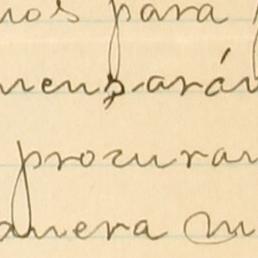 nos para
ensará
procura
nera m